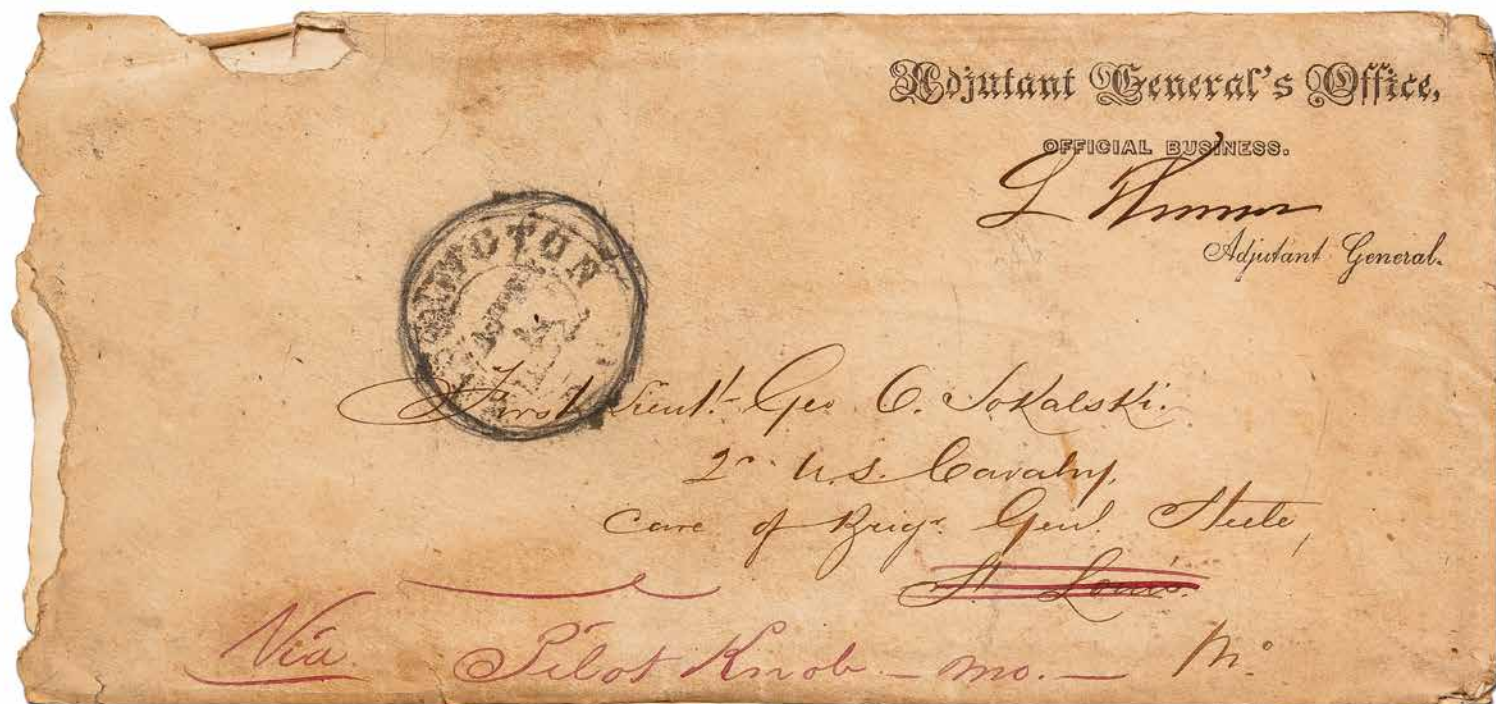 Adjutant General's Office,
OFFICIAL BUSINESS.
L Thomas
Adjutant General.
First Lieut. Geo O. Sokalski.
2d U.S. Cavalry,
Care of Brigr. Genl. Steele,
St. Louis.
Mo
Via Pilot Knob — Mo. —